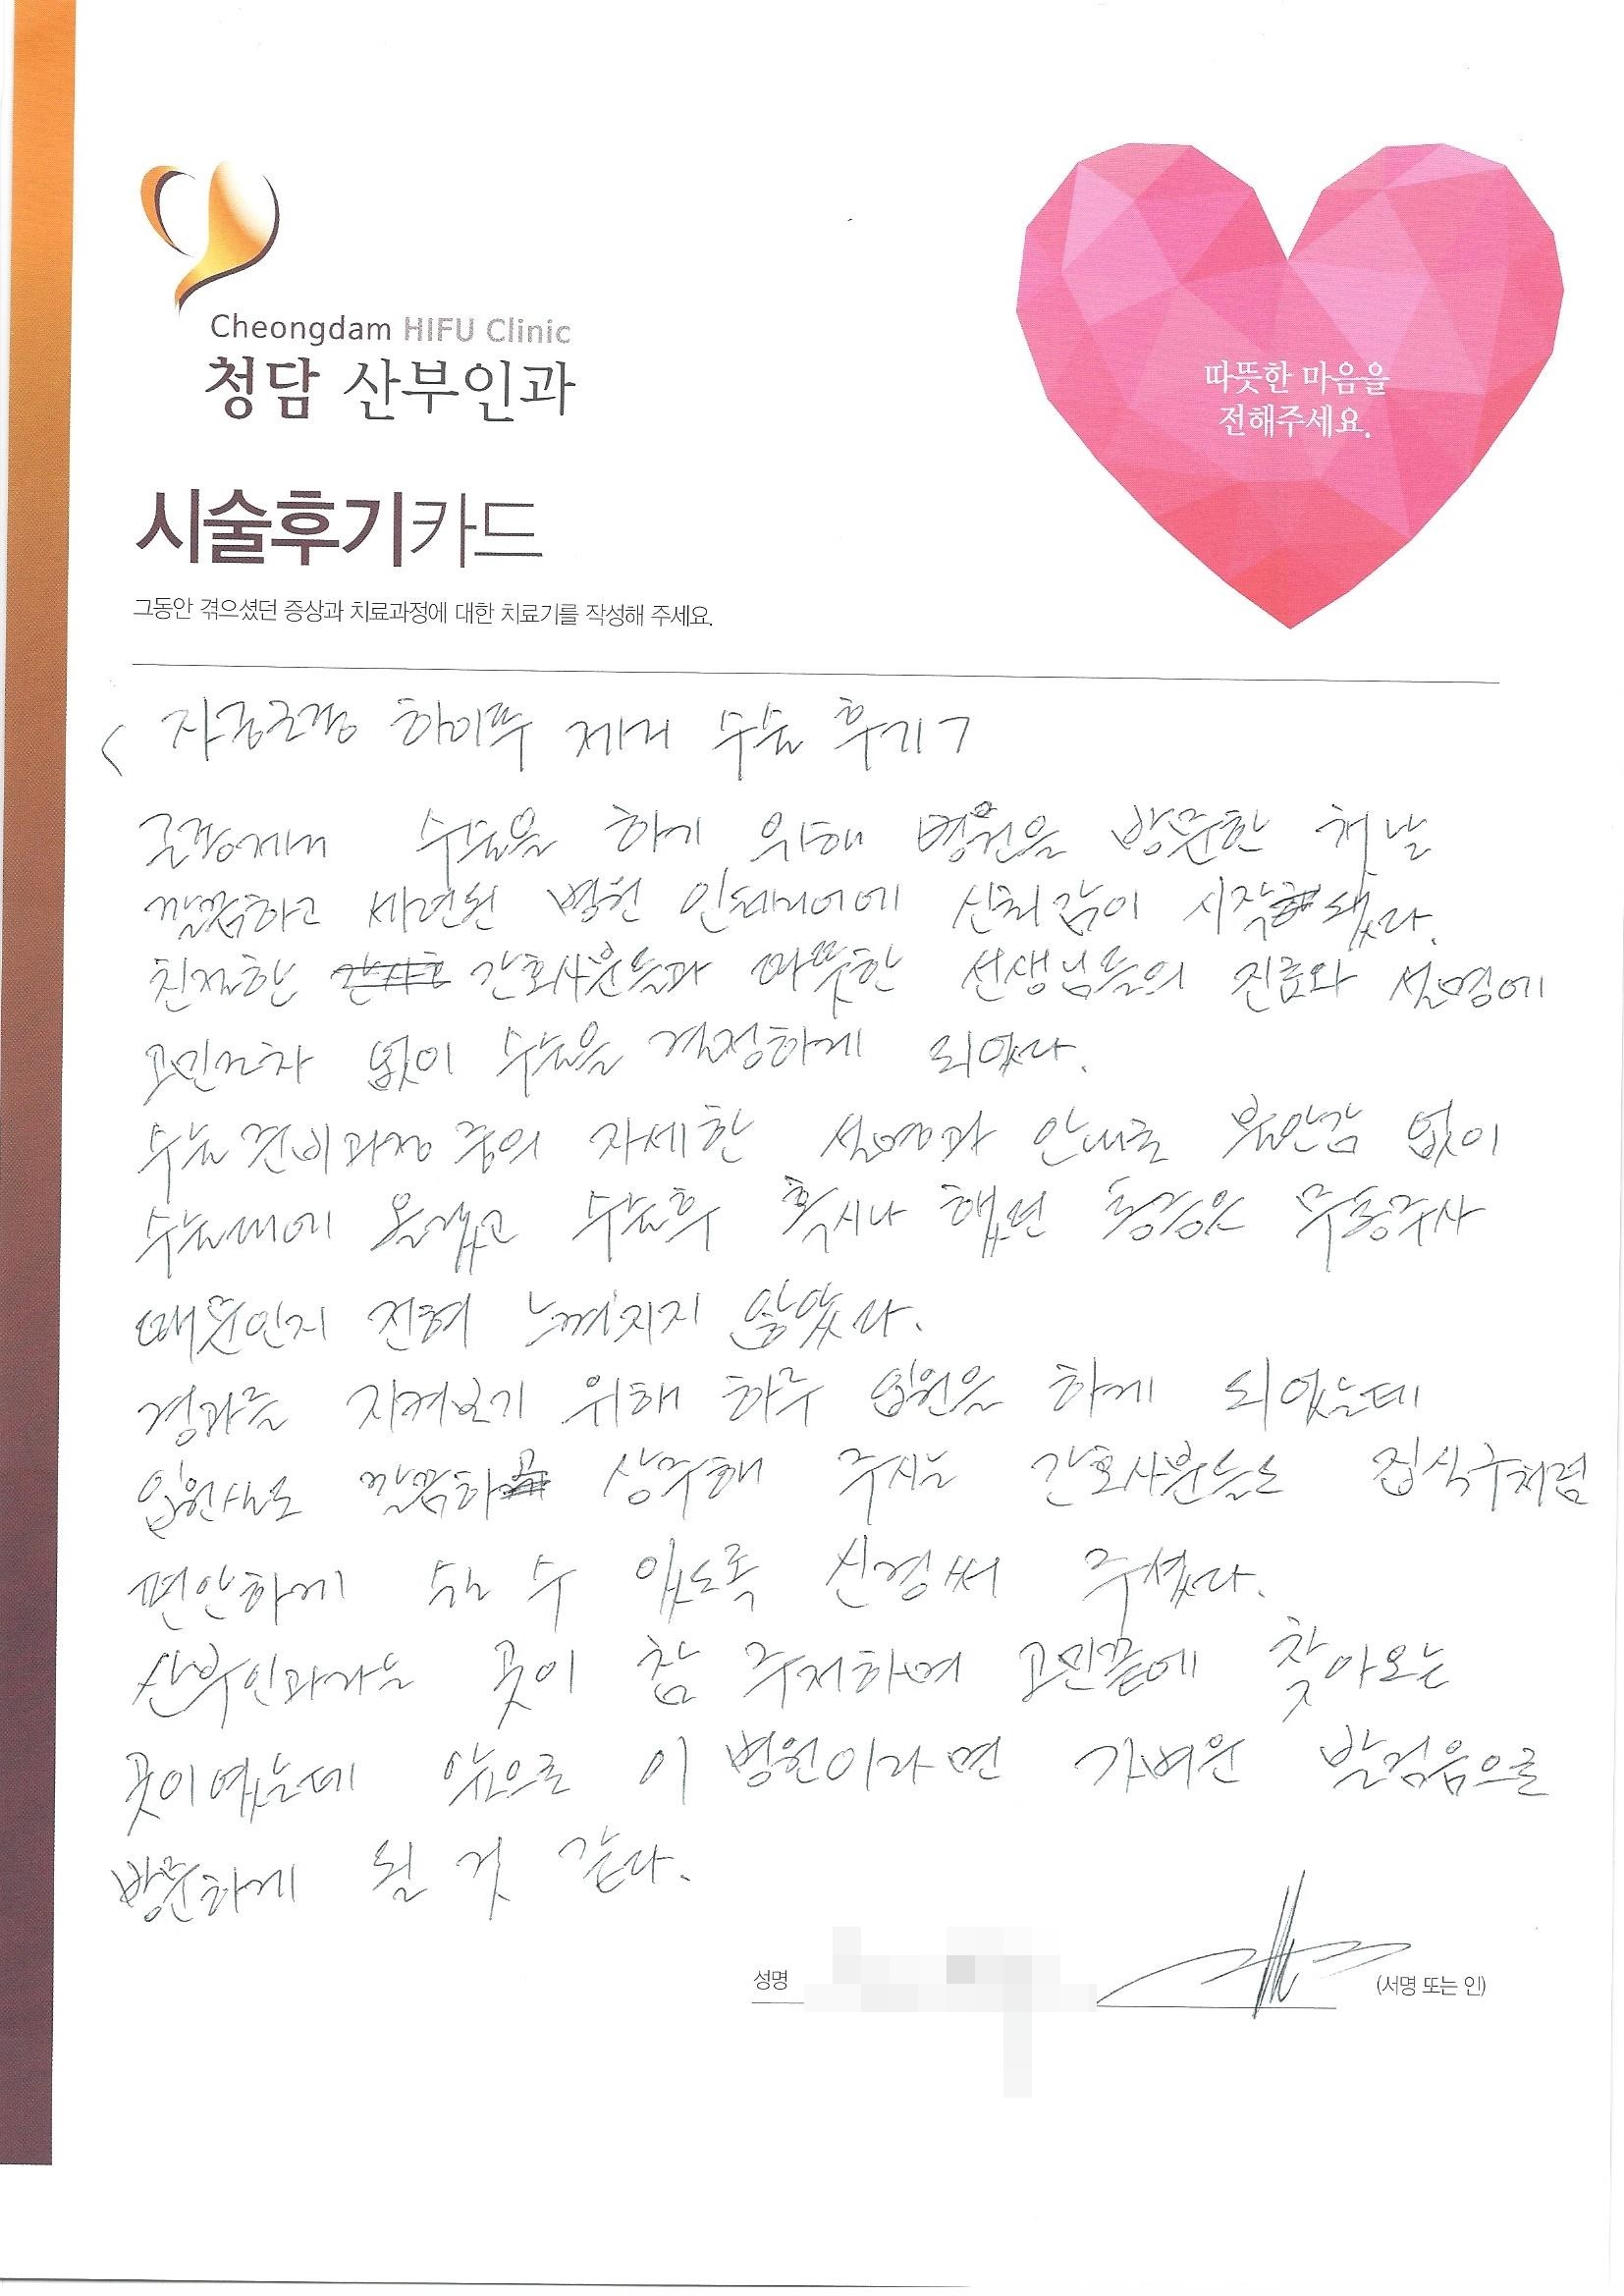 Cheongdam HIFU Clinic
청담 산부인과
따뜻한 마음을
전해주세요.
시술후기카드
그동안 겪으셨던 증상과 치료과정에 대한 치료기를 작성해 주세요.
< 자궁근종 하이푸 제거 수술 후기 >
근종제거 수술을 하기 위해 병원을 방문한 첫날
깔끔하고 세련된 병원 인테리어에 신뢰감이 시작됐다.
친절한 간호사분들과 따뜻한 선생님들의 진료와 설명에
고민조차 없이 수술을 결정하게 되었다.
수술준비과정 중의 자세한 설명과 안내로 불안감 없이
수술대에 올랐고 수술후 혹시나 했던 통증은 무통주사
때문인지 전혀 느껴지지 않았다.
경과를 지켜보기 위해 하루 입원을 하게 되었는데
입원실도 깔끔하고 상주해 주시는 간호사분들도 집식구처럼
편안하게 쉴 수 있도록 신경써 주셨다.
산부인과라는 곳이 참 주저하며 고민끝에 찾아오는
곳이였는데 앞으로 이 병원이라면 가벼운 발걸음으로
방문하게 될 것 같다.
성명 (서명 또는 인)